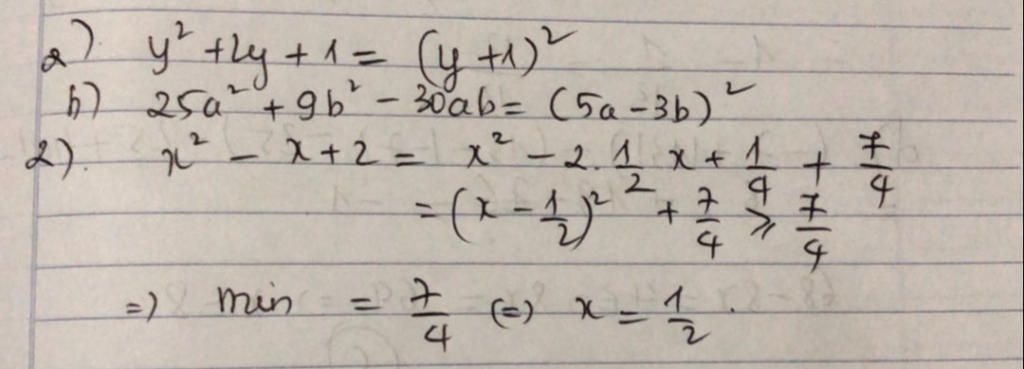 a) y² + 2y + 1 = (y + 1)²
b) 25a² + 9b² - 30ab = (5a - 3b)²
2). x² - x + 2 = x² - 2.1/2 x + 1/4 + 7/4
= (x - 1/2)² + 7/4 ⩾ 7/4
=) min = 7/4 (=) x = 1/2.